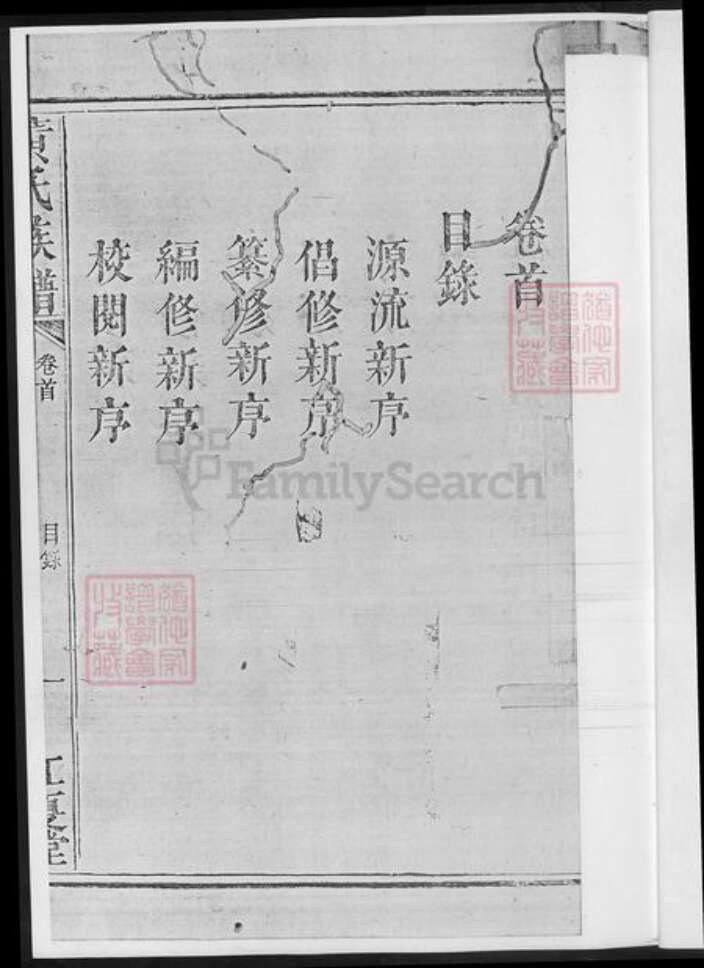 卷首
目錄
源流新序
倡修新序
纂修新序
編修新序
校閱新序
黃氏族譜
卷首
目錄
一
江夏堂
FamilySearch